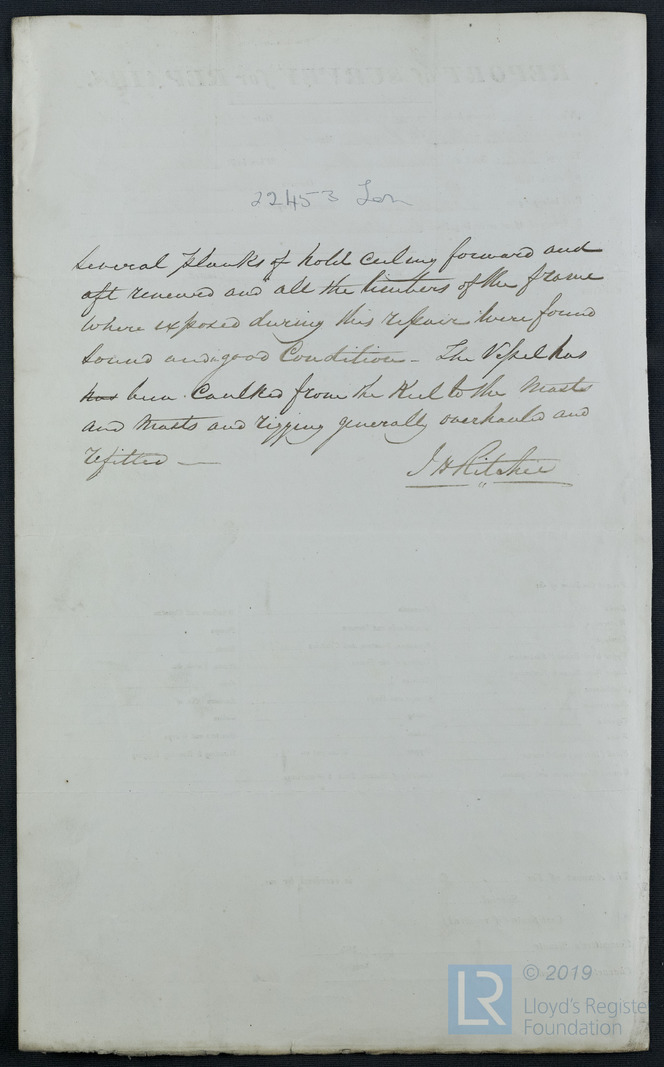 22453 Lon
Several planks of hold ceiling forward and
aft renewed and all the timbers of the frame
where exposed during this repair were found
sound and good Condition - The Vessel has
has been Caulked from the Keel to the Masts
and Masts and rigging generally overhauled and
refitted —
J H Ritchie
© 2019
Lloyd's Registe
Foundation